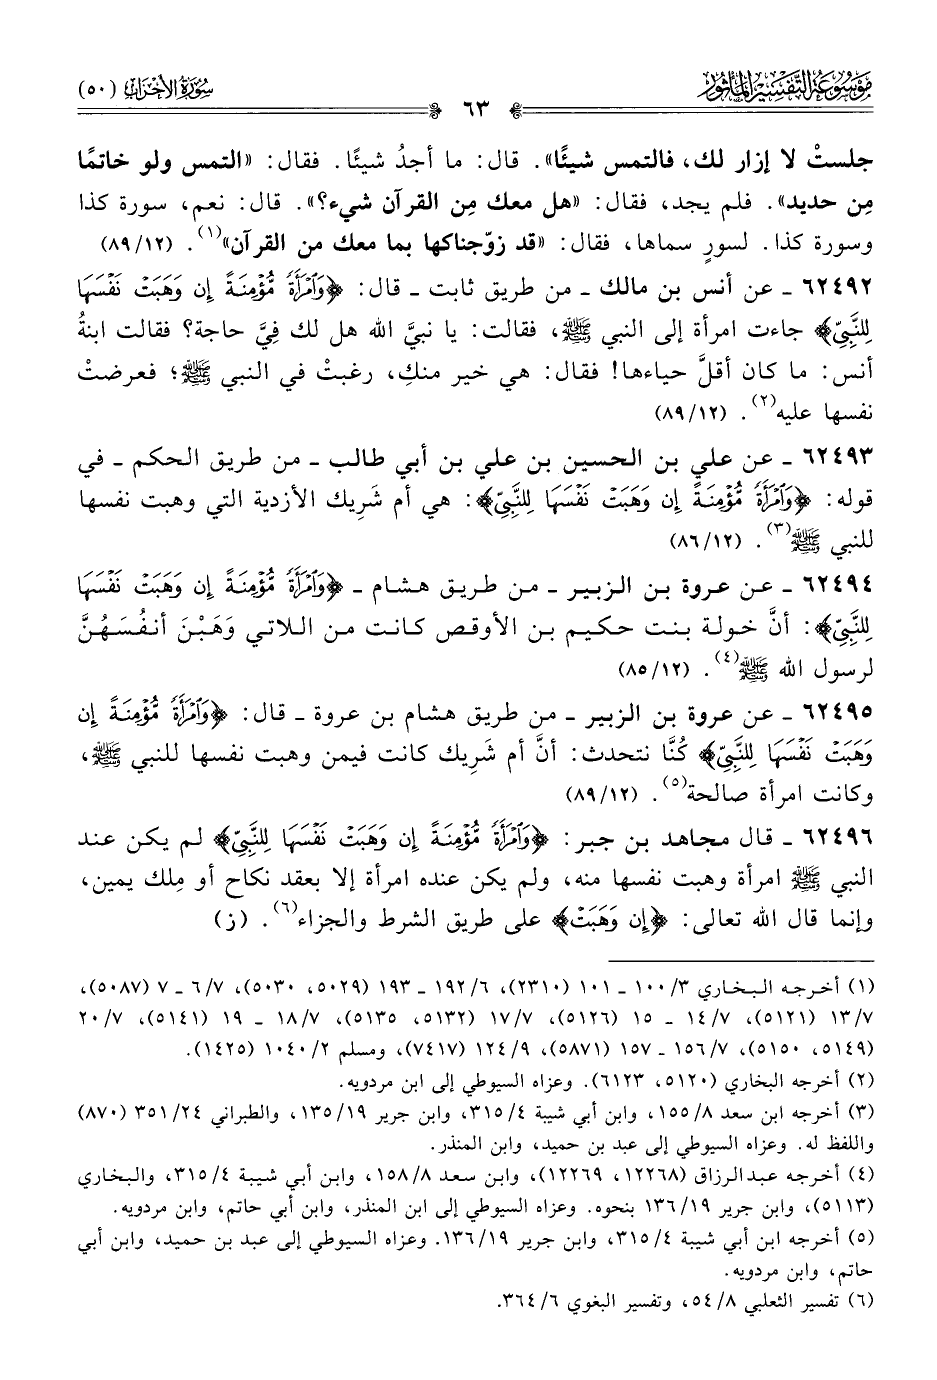 مَوْسُوعَةُ التَّفْسِيرِ المَأْثُور
٦٣
سُورَةُ الأَحْزَابِ (٥٠)
جلستْ لا إزار لك، فالتمس شيئًا». قال: ما أجدُ شيئًا. فقال: «التمس ولو خاتمًا
مِن حديد». فلم يجد، فقال: «هل معك مِن القرآن شيء؟». قال: نعم، سورة كذا
وسورة كذا. لسورٍ سماها، فقال: «قد زوّجناكها بما معك من القرآن»(١). (٨٩/١٢)
٦٢٤٩٢ ـ عن أنس بن مالك ـ من طريق ثابت ـ قال: ﴿وَٱمْرَأَةً مُّؤْمِنَةً إِن وَهَبَتْ نَفْسَهَا
لِلنَّبِيِّ﴾ جاءت امرأة إلى النبي ﷺ، فقالت: يا نبيَّ الله هل لك فِيَّ حاجة؟ فقالت ابنةُ
أنس: ما كان أقلَّ حياءها! فقال: هي خير منكِ، رغبتْ في النبي ﷺ؛ فعرضتْ
نفسها عليه(٢). (٨٩/١٢)
٦٢٤٩٣ ـ عن علي بن الحسين بن علي بن أبي طالب ـ من طريق الحكم ـ في
قوله: ﴿وَٱمْرَأَةً مُّؤْمِنَةً إِن وَهَبَتْ نَفْسَهَا لِلنَّبِيِّ﴾: هي أم شَرِيك الأزدية التي وهبت نفسها
للنبي ﷺ(٣). (٨٦/١٢)
٦٢٤٩٤ ـ عن عروة بن الزبير ـ من طريق هشام ـ ﴿وَٱمْرَأَةً مُّؤْمِنَةً إِن وَهَبَتْ نَفْسَهَا
لِلنَّبِيِّ﴾: أنَّ خولة بنت حكيم بن الأوقص كانت من اللاتي وَهَبْنَ أنفُسَهُنَّ
لرسول الله ﷺ(٤). (٨٥/١٢)
٦٢٤٩٥ ـ عن عروة بن الزبير ـ من طريق هشام بن عروة ـ قال: ﴿وَٱمْرَأَةً مُّؤْمِنَةً إِن
وَهَبَتْ نَفْسَهَا لِلنَّبِيِّ﴾ كُنَّا نتحدث: أنَّ أم شَرِيك كانت فيمن وهبت نفسها للنبي ﷺ،
وكانت امرأة صالحة(٥). (٨٩/١٢)
٦٢٤٩٦ ـ قال مجاهد بن جبر: ﴿وَٱمْرَأَةً مُّؤْمِنَةً إِن وَهَبَتْ نَفْسَهَا لِلنَّبِيِّ﴾ لم يكن عند
النبي ﷺ امرأة وهبت نفسها منه، ولم يكن عنده امرأة إلا بعقد نكاح أو مِلك يمين،
وإنما قال الله تعالى: ﴿إِن وَهَبَتْ﴾ على طريق الشرط والجزاء(٦). (ز)
(١) أخرجه البخاري ١٠٠/٣ ـ ١٠١ (٢٣١٠)، ١٩٢/٦ ـ ١٩٣ (٥٠٢٩، ٥٠٣٠)، ٦/٧ ـ ٧ (٥٠٨٧)،
١٣/٧ (٥١٢١)، ١٤/٧ ـ ١٥ (٥١٢٦)، ١٧/٧ (٥١٣٢، ٥١٣٥)، ١٨/٧ ـ ١٩ (٥١٤١)، ٢٠/٧
(٥١٤٩، ٥١٥٠)، ١٥٦/٧ ـ ١٥٧ (٥٨٧١)، ١٢٤/٩ (٧٤١٧)، ومسلم ١٠٤٠/٢ (١٤٢٥).
(٢) أخرجه البخاري (٥١٢٠، ٦١٢٣). وعزاه السيوطي إلى ابن مردويه.
(٣) أخرجه ابن سعد ١٥٥/٨، وابن أبي شيبة ٣١٥/٤، وابن جرير ١٣٥/١٩، والطبراني ٣٥١/٢٤ (٨٧٠)
واللفظ له. وعزاه السيوطي إلى عبد بن حميد، وابن المنذر.
(٤) أخرجه عبدالرزاق (١٢٢٦٨، ١٢٢٦٩)، وابن سعد ١٥٨/٨، وابن أبي شيبة ٣١٥/٤، والبخاري
(٥١١٣)، وابن جرير ١٣٦/١٩ بنحوه. وعزاه السيوطي إلى ابن المنذر، وابن أبي حاتم، وابن مردويه.
(٥) أخرجه ابن أبي شيبة ٣١٥/٤، وابن جرير ١٣٦/١٩. وعزاه السيوطي إلى عبد بن حميد، وابن أبي
حاتم، وابن مردويه.
(٦) تفسير الثعلبي ٥٤/٨، وتفسير البغوي ٣٦٤/٦.